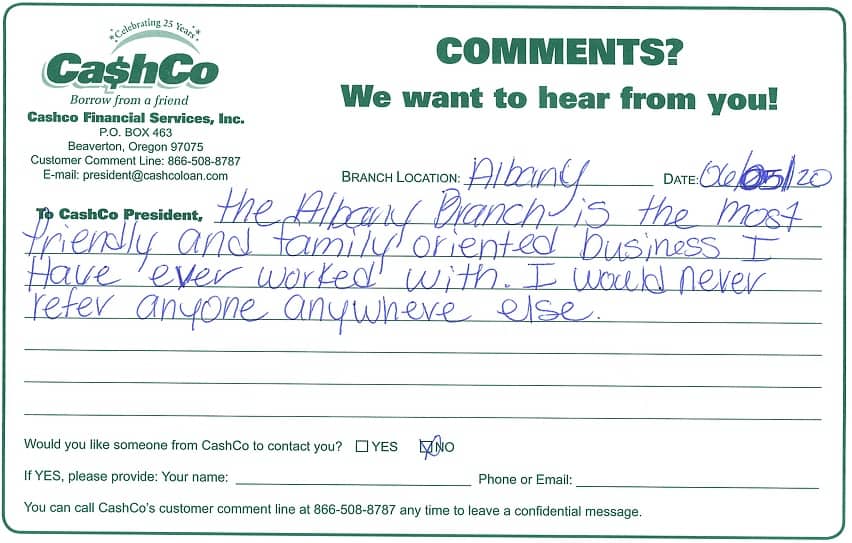 Celebrating 25 Years
Ca$hCo
Borrow from a friend
Cashco Financial Services, Inc.
P.O. BOX 463
Beaverton, Oregon 97075
Customer Comment Line: 866-508-8787
E-mail: president@cashcoloan.com
COMMENTS?
We want to hear from you!
BRANCH LOCATION: Albany DATE: 06/05/20
To CashCo President, the Albany Branch is the most
friendly and family oriented business I
Have ever worked with. I would never
refer anyone anywhere else.
Would you like someone from CashCo to contact you? ☐ YES ☑ NO
If YES, please provide: Your name: Phone or Email:
You can call CashCo's customer comment line at 866-508-8787 any time to leave a confidential message.